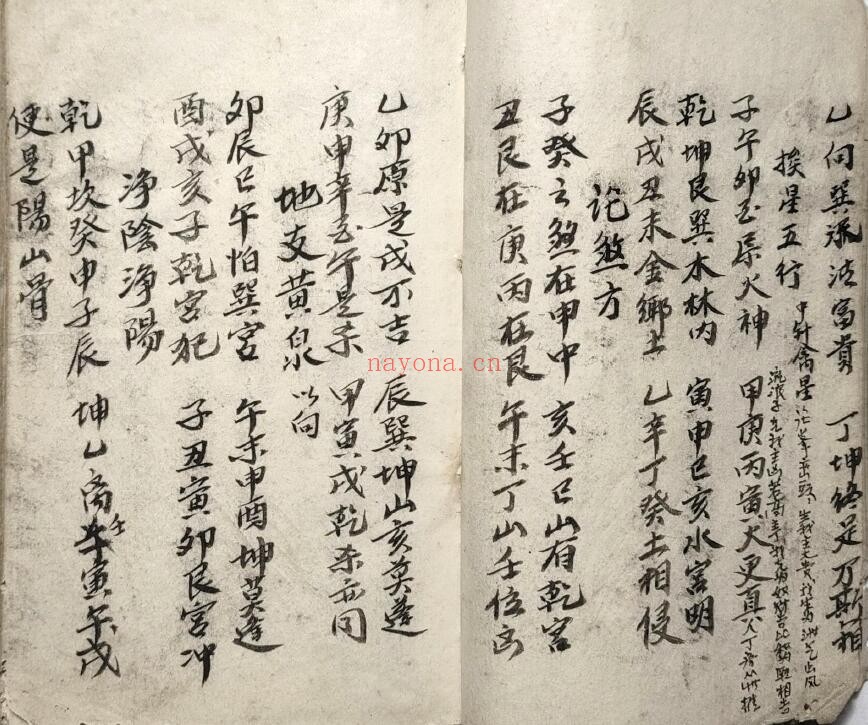 乙向巽流法富貴 丁坤終是万斯相
挨星五行
中針禽星
子午卯酉原火神 甲庚丙寅火更真
乾坤艮巽木林内 寅申巳亥水宮明
辰戌丑未金鄉土 乙辛丁癸土相侵
論煞方
子癸之煞在申中 亥壬巳山有乾宮
丑艮在庚丙在艮 午未丁山壬位凶
乙卯原是戌不吉 辰巽坤山亥莫逢
庚申辛酉午是杀 甲寅戌乾杀
地支黄泉 以向
卯辰巳午怕巽宮 午未申酉坤莫逢
酉戌亥子乾宮犯 子丑寅卯艮宮冲
净陰净陽
乾甲坎癸申子辰 坤乙离壬寅午戌
便是陽山骨
nayona.cn